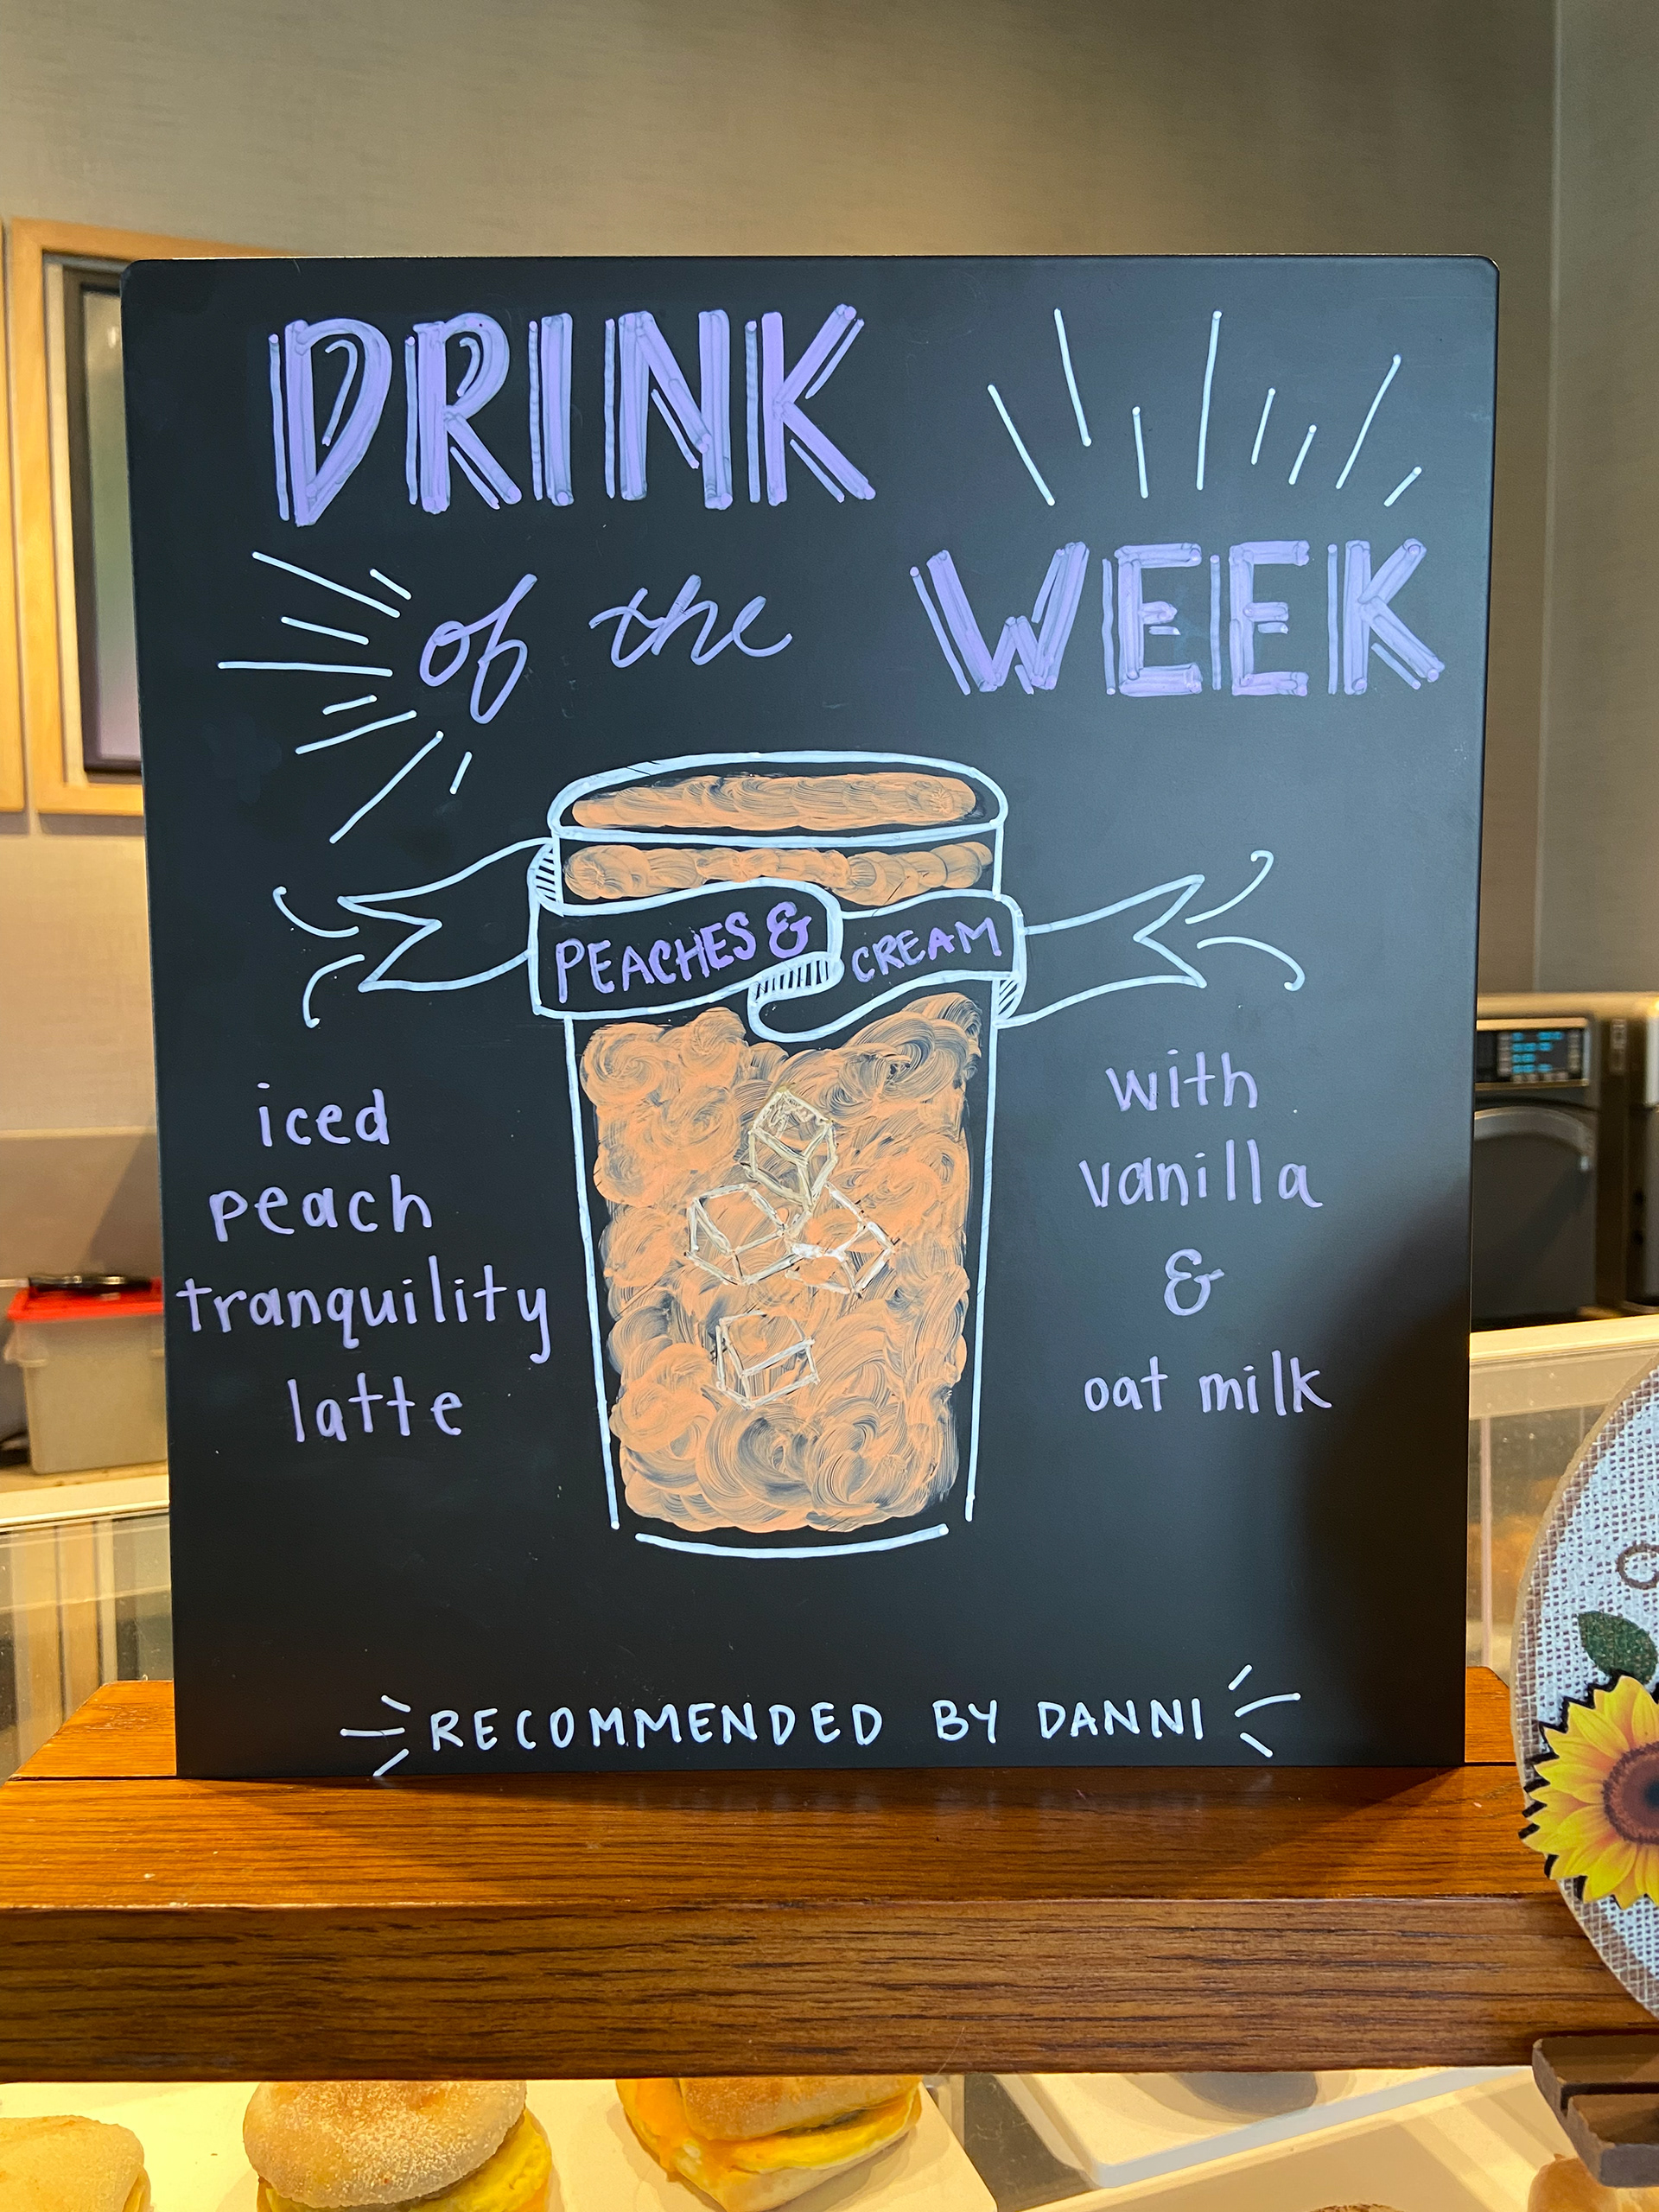 DRINK
of the WEEK
PEACHES & CREAM
iced
peach
tranquility
latte
with
vanilla
&
oat milk
RECOMMENDED BY DANNI